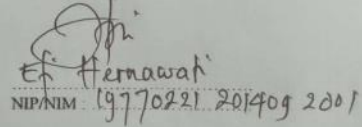 Efi Hernawati
NIP/NIM : 19770221 201409 2001